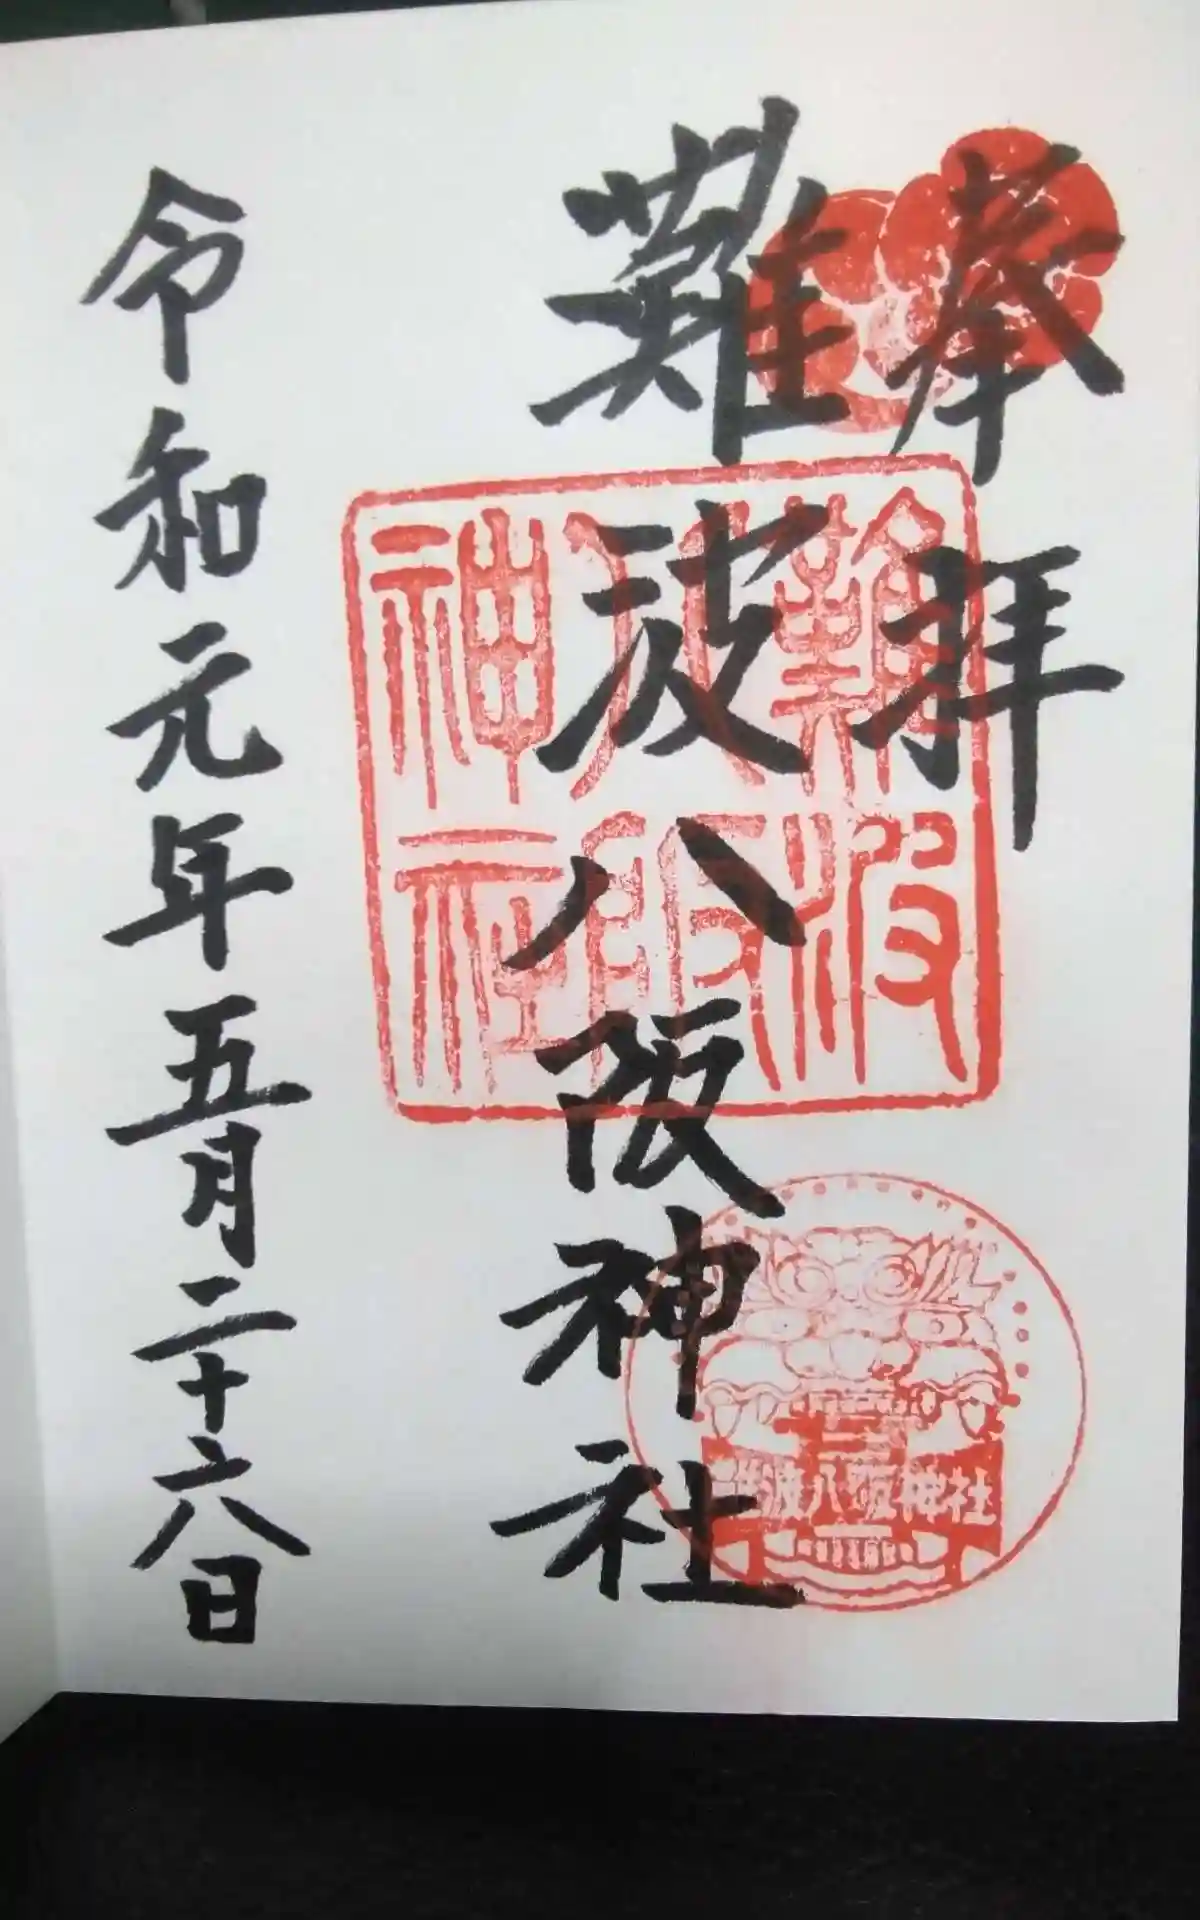 奉拝
難波八阪神社
難波八阪神社
難波八阪神社
令和元年五月二十六日